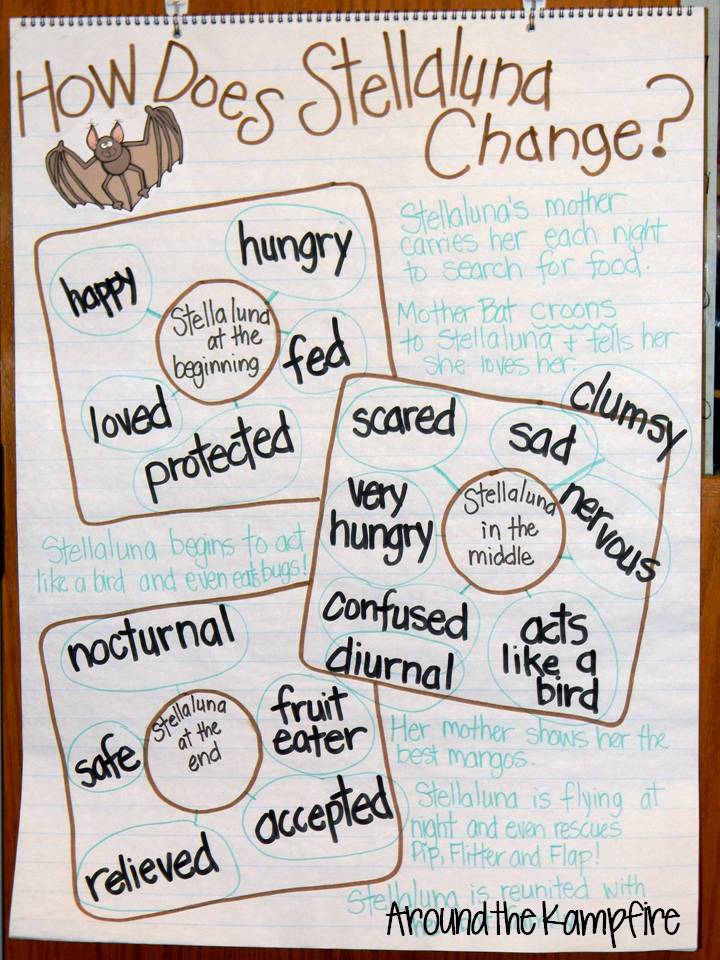 How Does Stellaluna
Change?
happy
hungry
Stellaluna
at the
beginning
fed
loved
protected
Stellaluna's mother
carries her each night
to search for food.
Mother Bat croons
to Stellaluna + tells her
she loves her.
scared
sad
clumsy
very
hungry
Stellaluna
in the
middle
nervous
confused
diurnal
acts
like a
bird
Stellaluna begins to act
like a bird and even eats bugs!
nocturnal
safe
Stellaluna
at the
end
fruit
eater
accepted
relieved
Her mother shows her the
best mangos.
Stellaluna is flying at
night and even rescues
Pip, Flitter and Flap!
Stellaluna is reunited with
Around the Kampfire